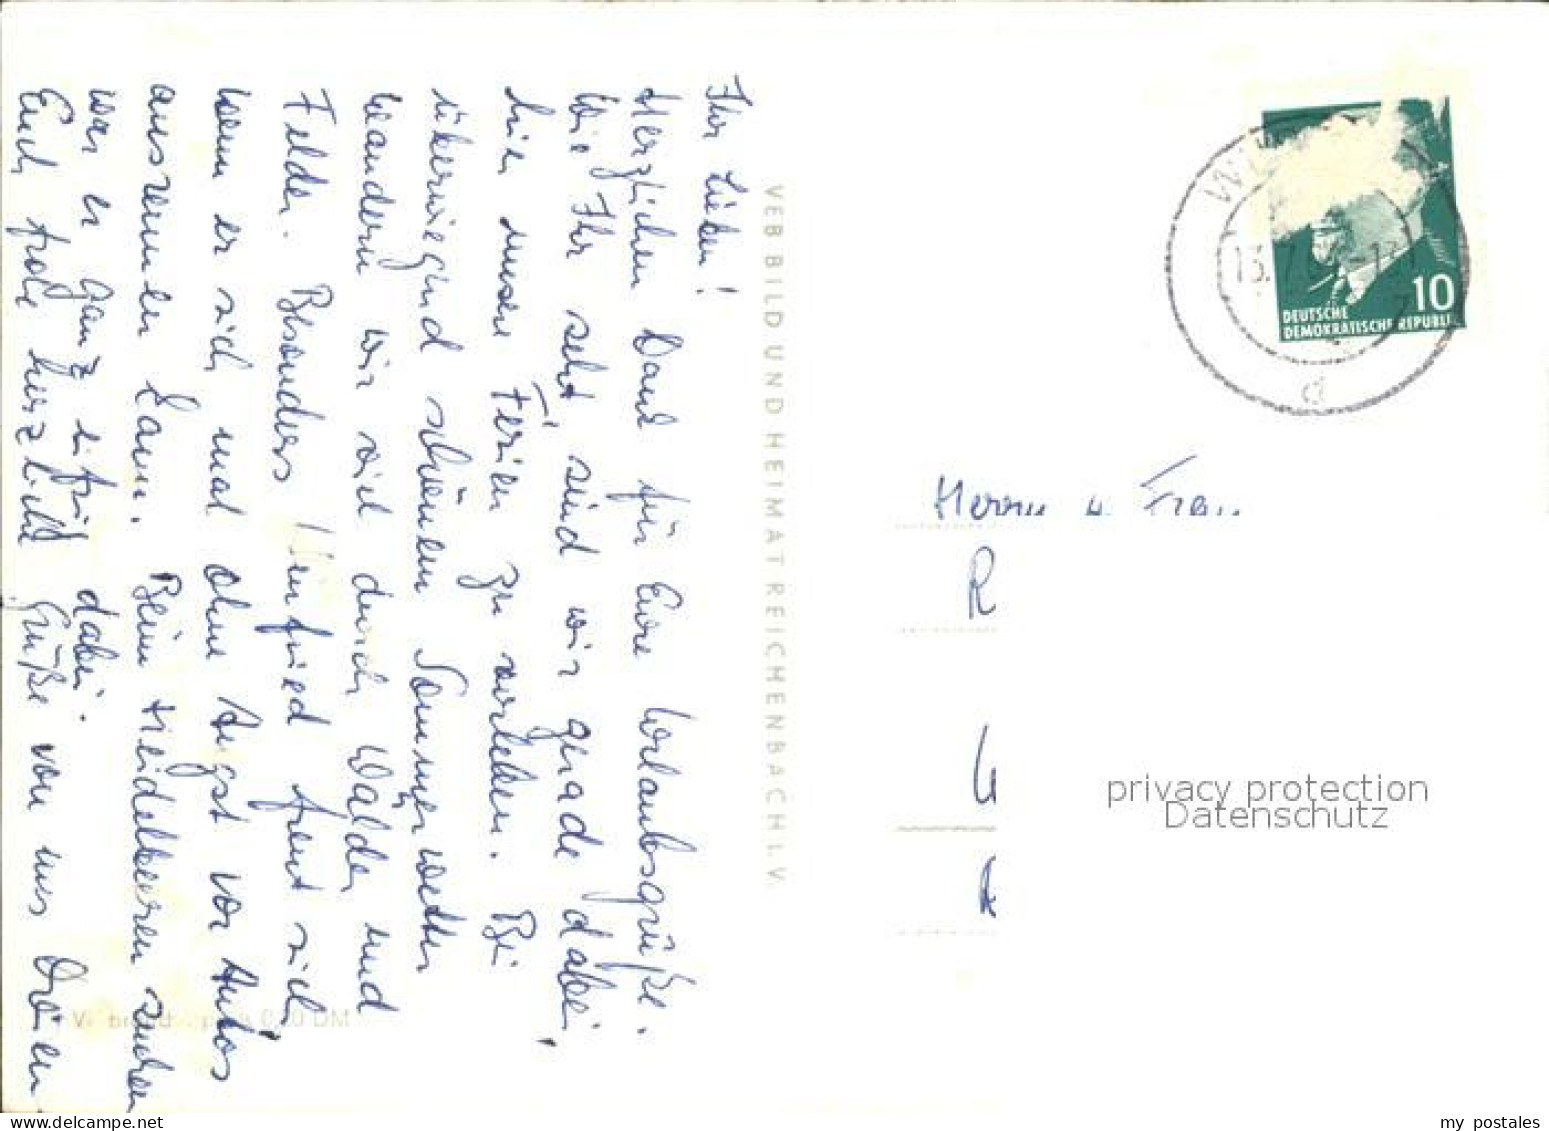 Ihr Lieben!
Herzlichen Dank für Eure Urlaubsgrüße.
Wie Ihr seht, sind wir gerade dabei,
hier unsere Ferien zu verleben. Bei
überwiegend schönem Sommerwetter
wandern wir viel durch Wälder und
Felder. Besonders Winfried freut sich,
wenn er sich mal ohne Angst vor Autos
ausrennen kann. Beim Heidelbeeren suchen
war er ganz eifrig dabei.
Euch frohe herzliche Grüße von uns Dreien
VEB BILD UND HEIMAT REICHENBACH I. V.
0,20 DM
10
DEUTSCHE
DEMOKRATISCHE REPUBLIK
d
Herrn u. Frau
R
privacy protection
Datenschutz
my postales